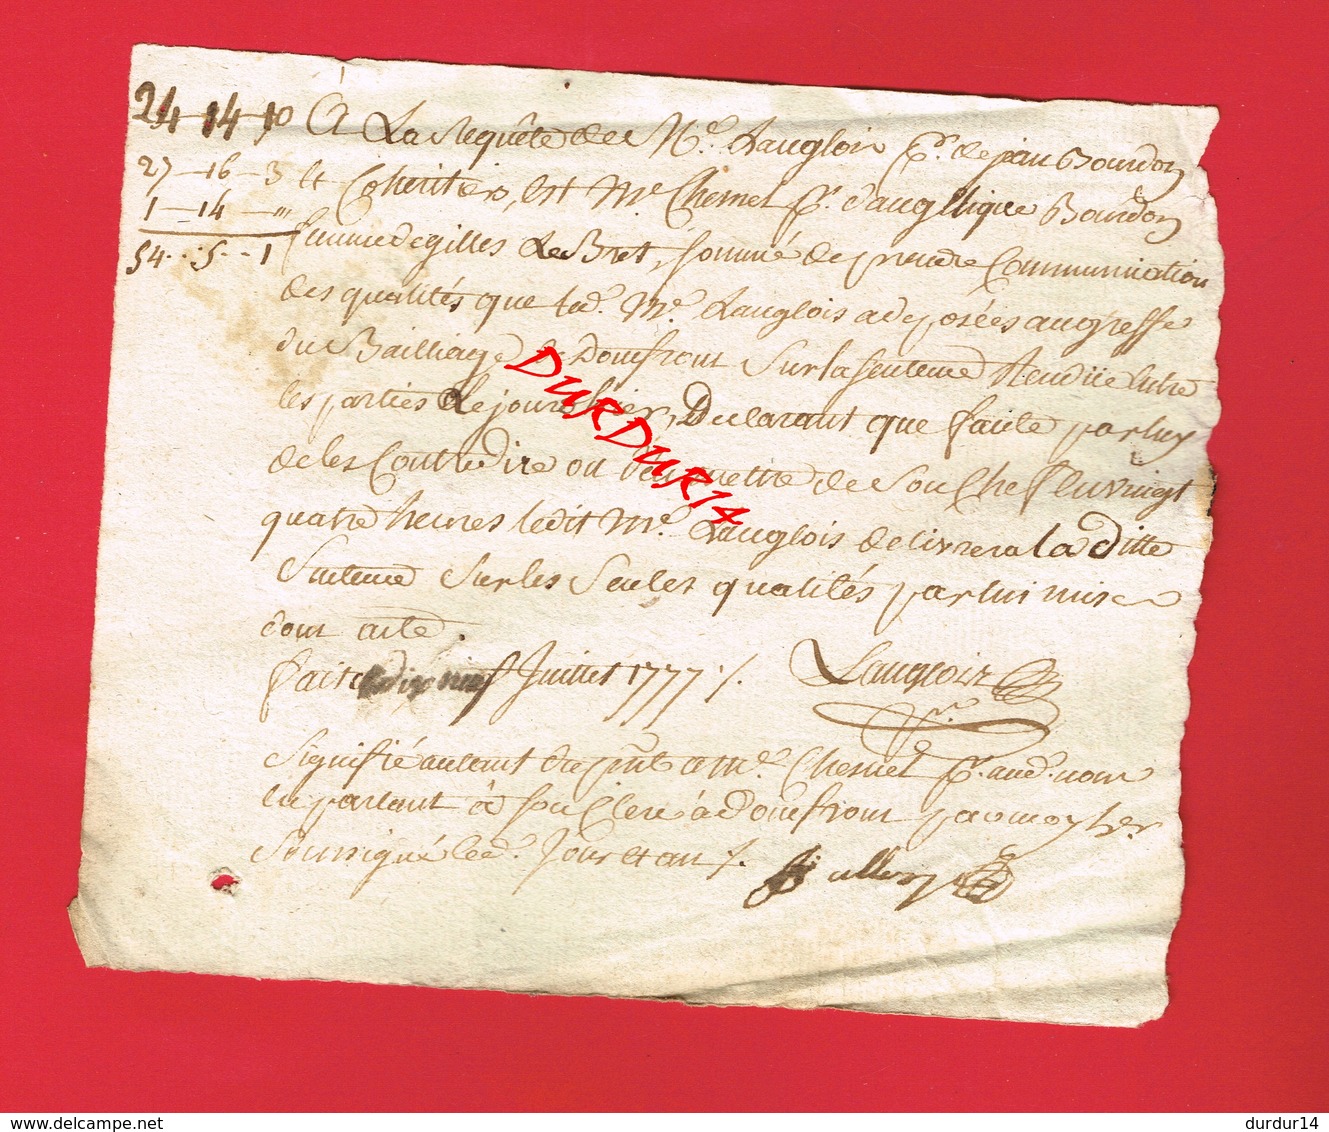 24-14-10
27-16-3
1-14-"
54..5..1
A La Requête de Me. Langlois Pr. de jean Bourdon
et Coheritiers, est Me Chesnel Pr. d'angellique Bourdon
femme de gilles LeBret, sommé de prendre Communication
des qualités que led. Me. Langlois a deposées au greffe
du Bailliage de Domfront Sur la sentence Rendüe entre
les parties Le jour d'hier, Declarant que faute par luy
de les Contredire ou Permettre de son Chef en vingt
quatre heures ledit Me. Langlois delivrera la ditte
Sentence Sur les Seules qualités par lui mises
dont acte.
fait le dix neuf Juillet 1777 ./.
Langlois
pr.
Signifié autant du pnt a Me. Chesnel Pr. aud. nom
en parlant à son Clerc à domfront par moy her.
Soussigné led. Jour et an ./.
DURDUR14
www.delcampe.net
durdur14